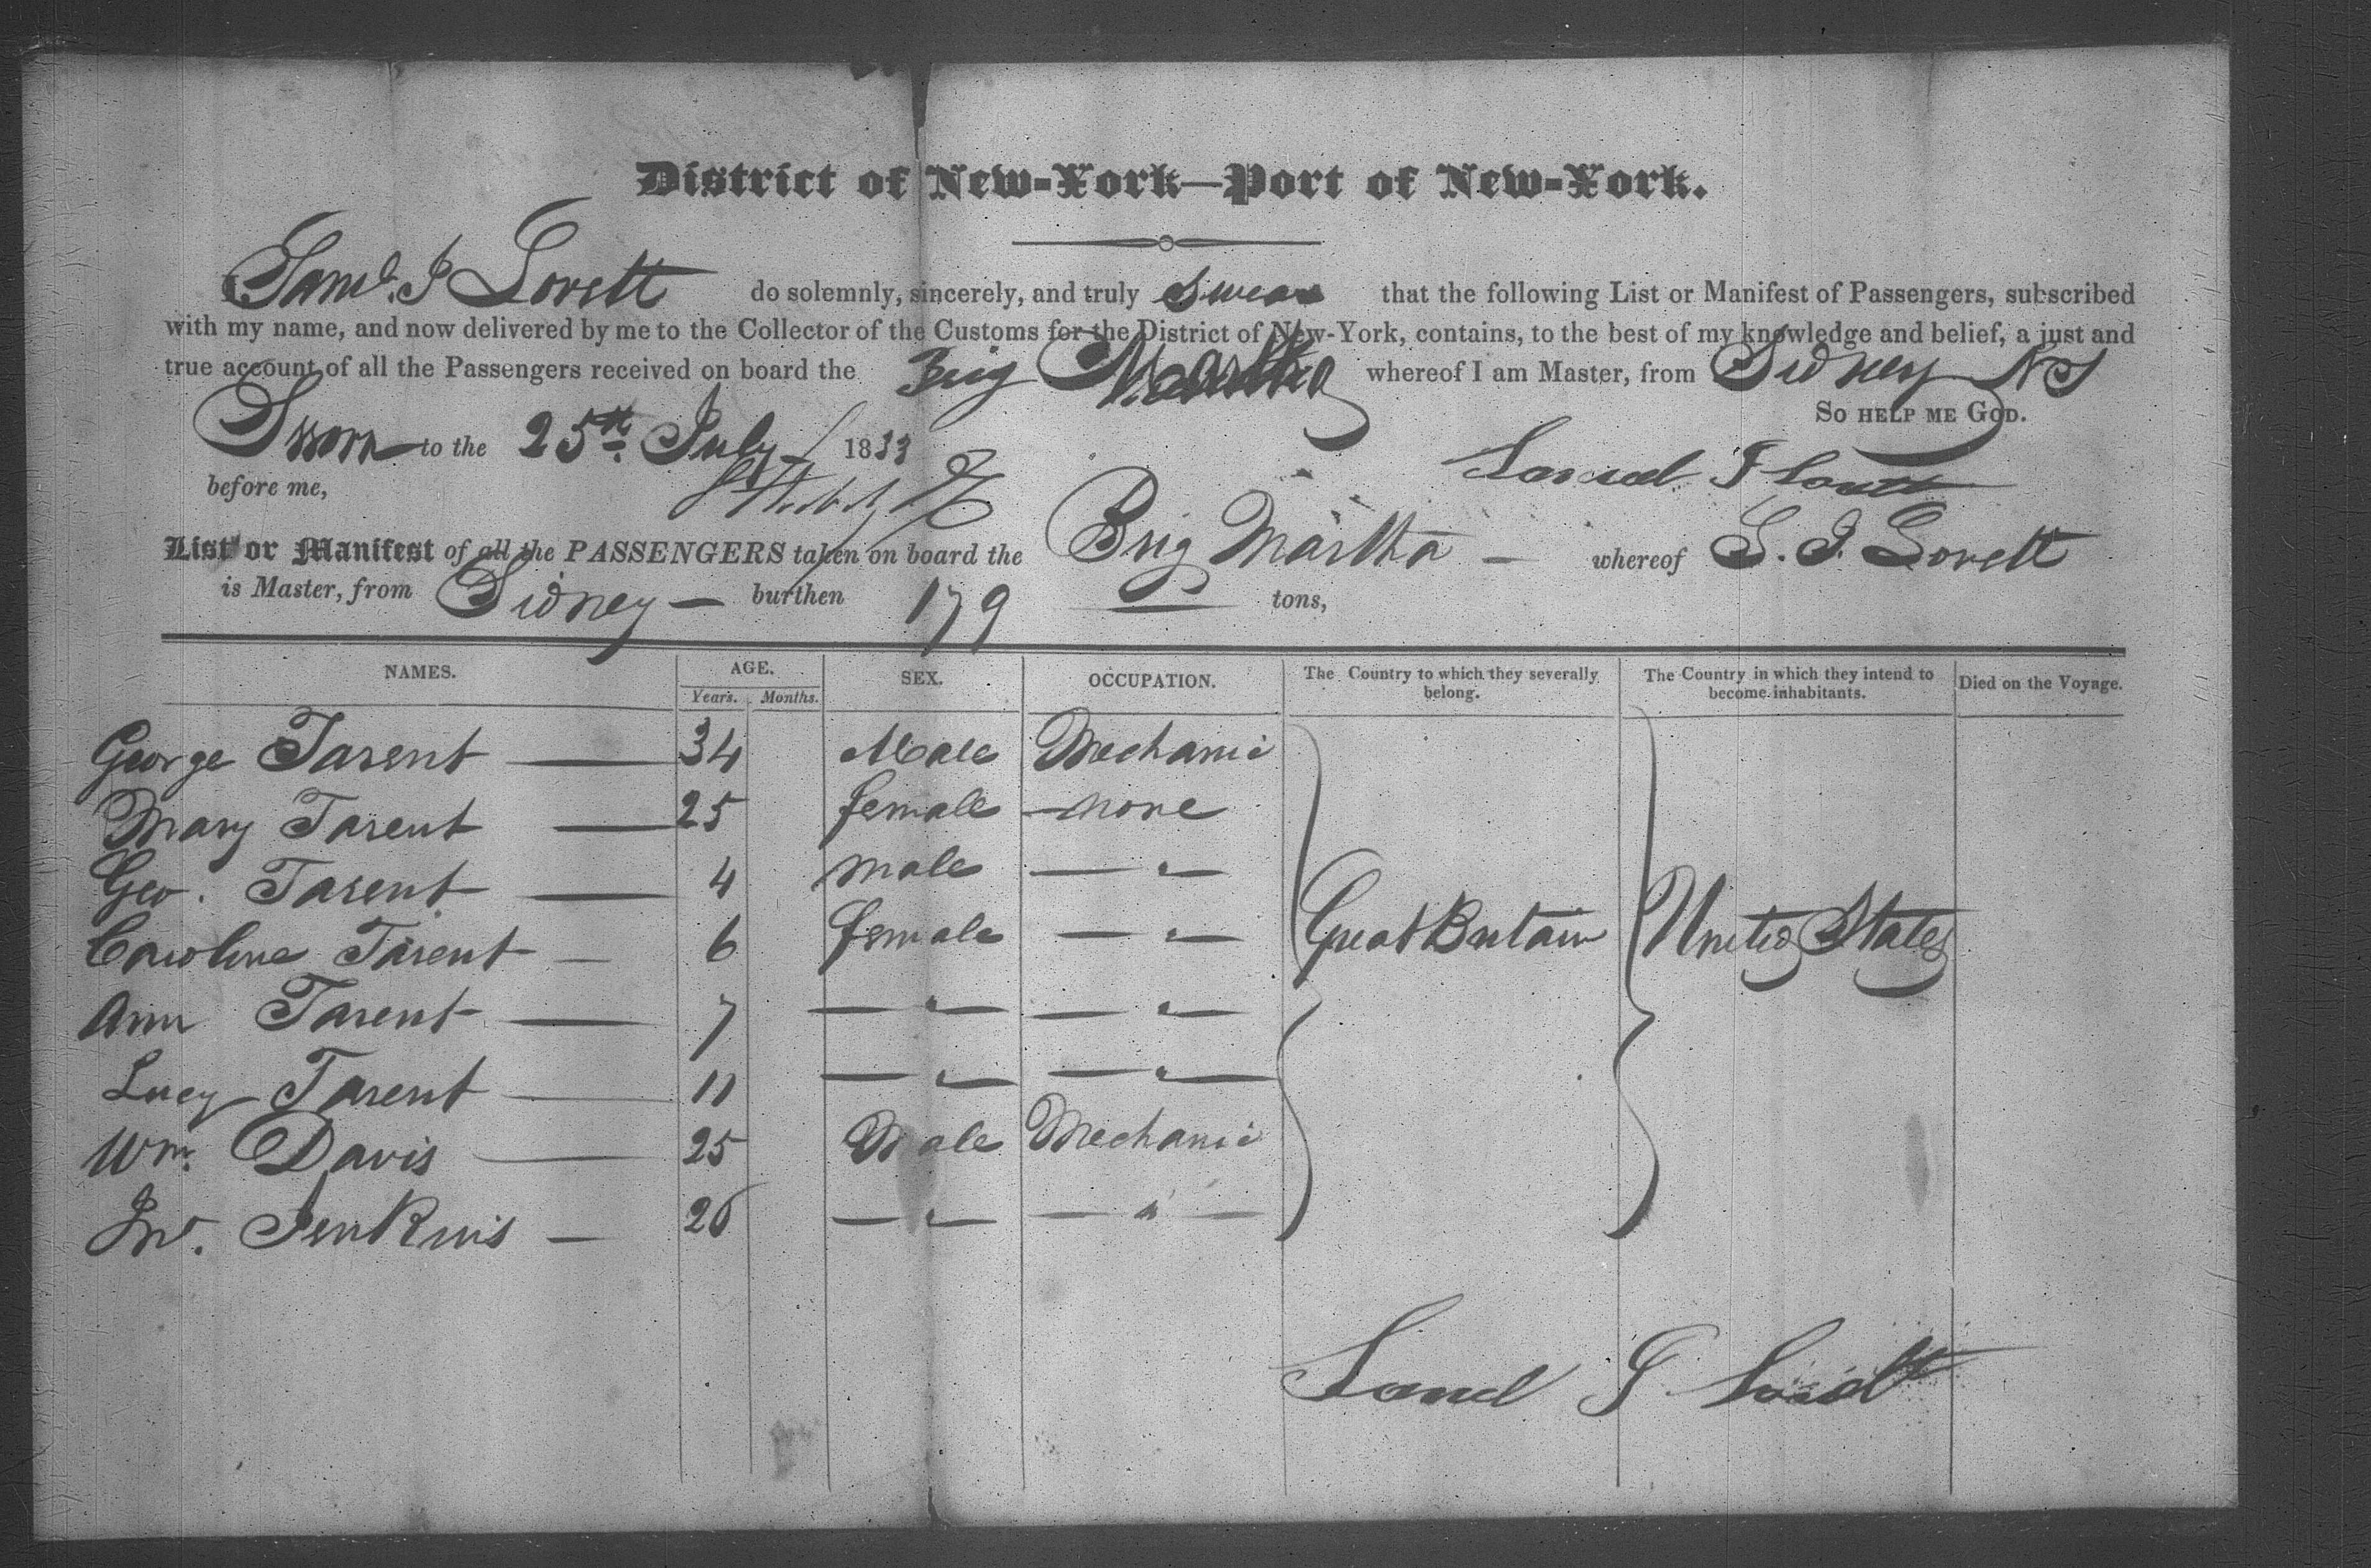 District of New-York—Port of New-York.
I Saml. J Lovett do solemnly, sincerely, and truly swear that the following List or Manifest of Passengers, subscribed
with my name, and now delivered by me to the Collector of the Customs for the District of New-York, contains, to the best of my knowledge and belief, a just and
true account of all the Passengers received on board the Brig Martha whereof I am Master, from Sidney NS
So help me God.
Sworn to the 25th July 1833
Samuel J Lovett
before me,
List or Manifest of all the PASSENGERS taken on board the Brig Martha — whereof S. J. Lovett
is Master, from Sidney — burthen 179 tons,
NAMES. AGE. SEX. OCCUPATION. The Country to which they severally belong. The Country in which they intend to become inhabitants. Died on the Voyage.
Years. Months.
George Tarent — 34 Male Mechanic
Mary Tarent — 25 female none
Geo. Tarent — 4 male — " —
Caroline Tarent — 6 female — " — Great Britain United States
Ann Tarent — 7 — " — — " —
Lucy Tarent — 11 — " — — " —
Wm. Davis — 25 Male Mechanic
Jno. Jenkins — 26 — " — — " —
Samuel J Lovett